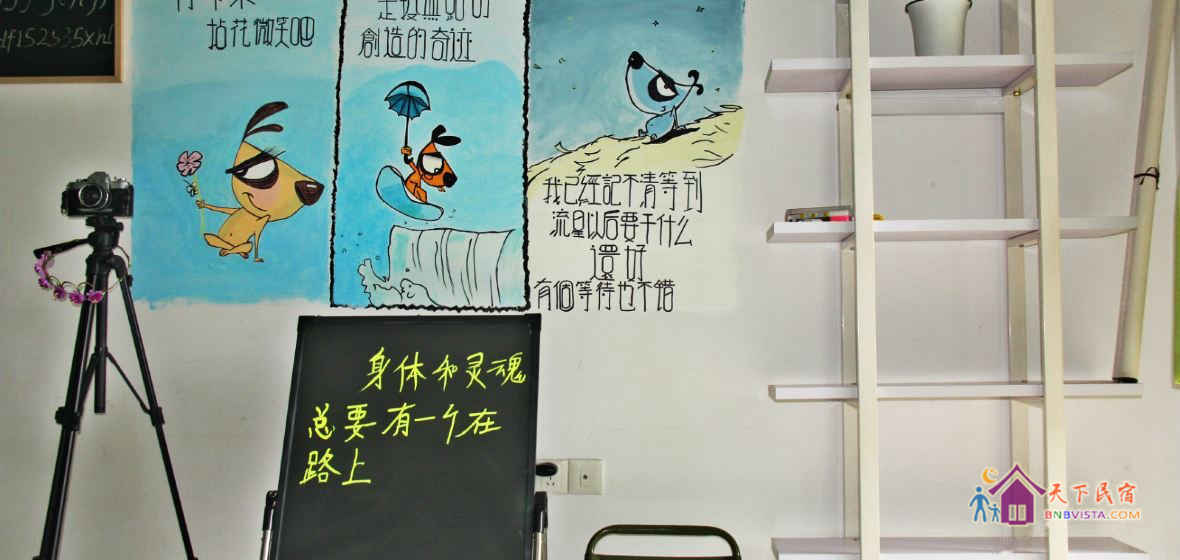 拈花微笑吧
創造的奇迹
我已經記不清等到
流星以后要干什么
還好
有個等待也不錯
身体和灵魂
总要有一个在
路上
天下民宿
BNBVISTA.COM